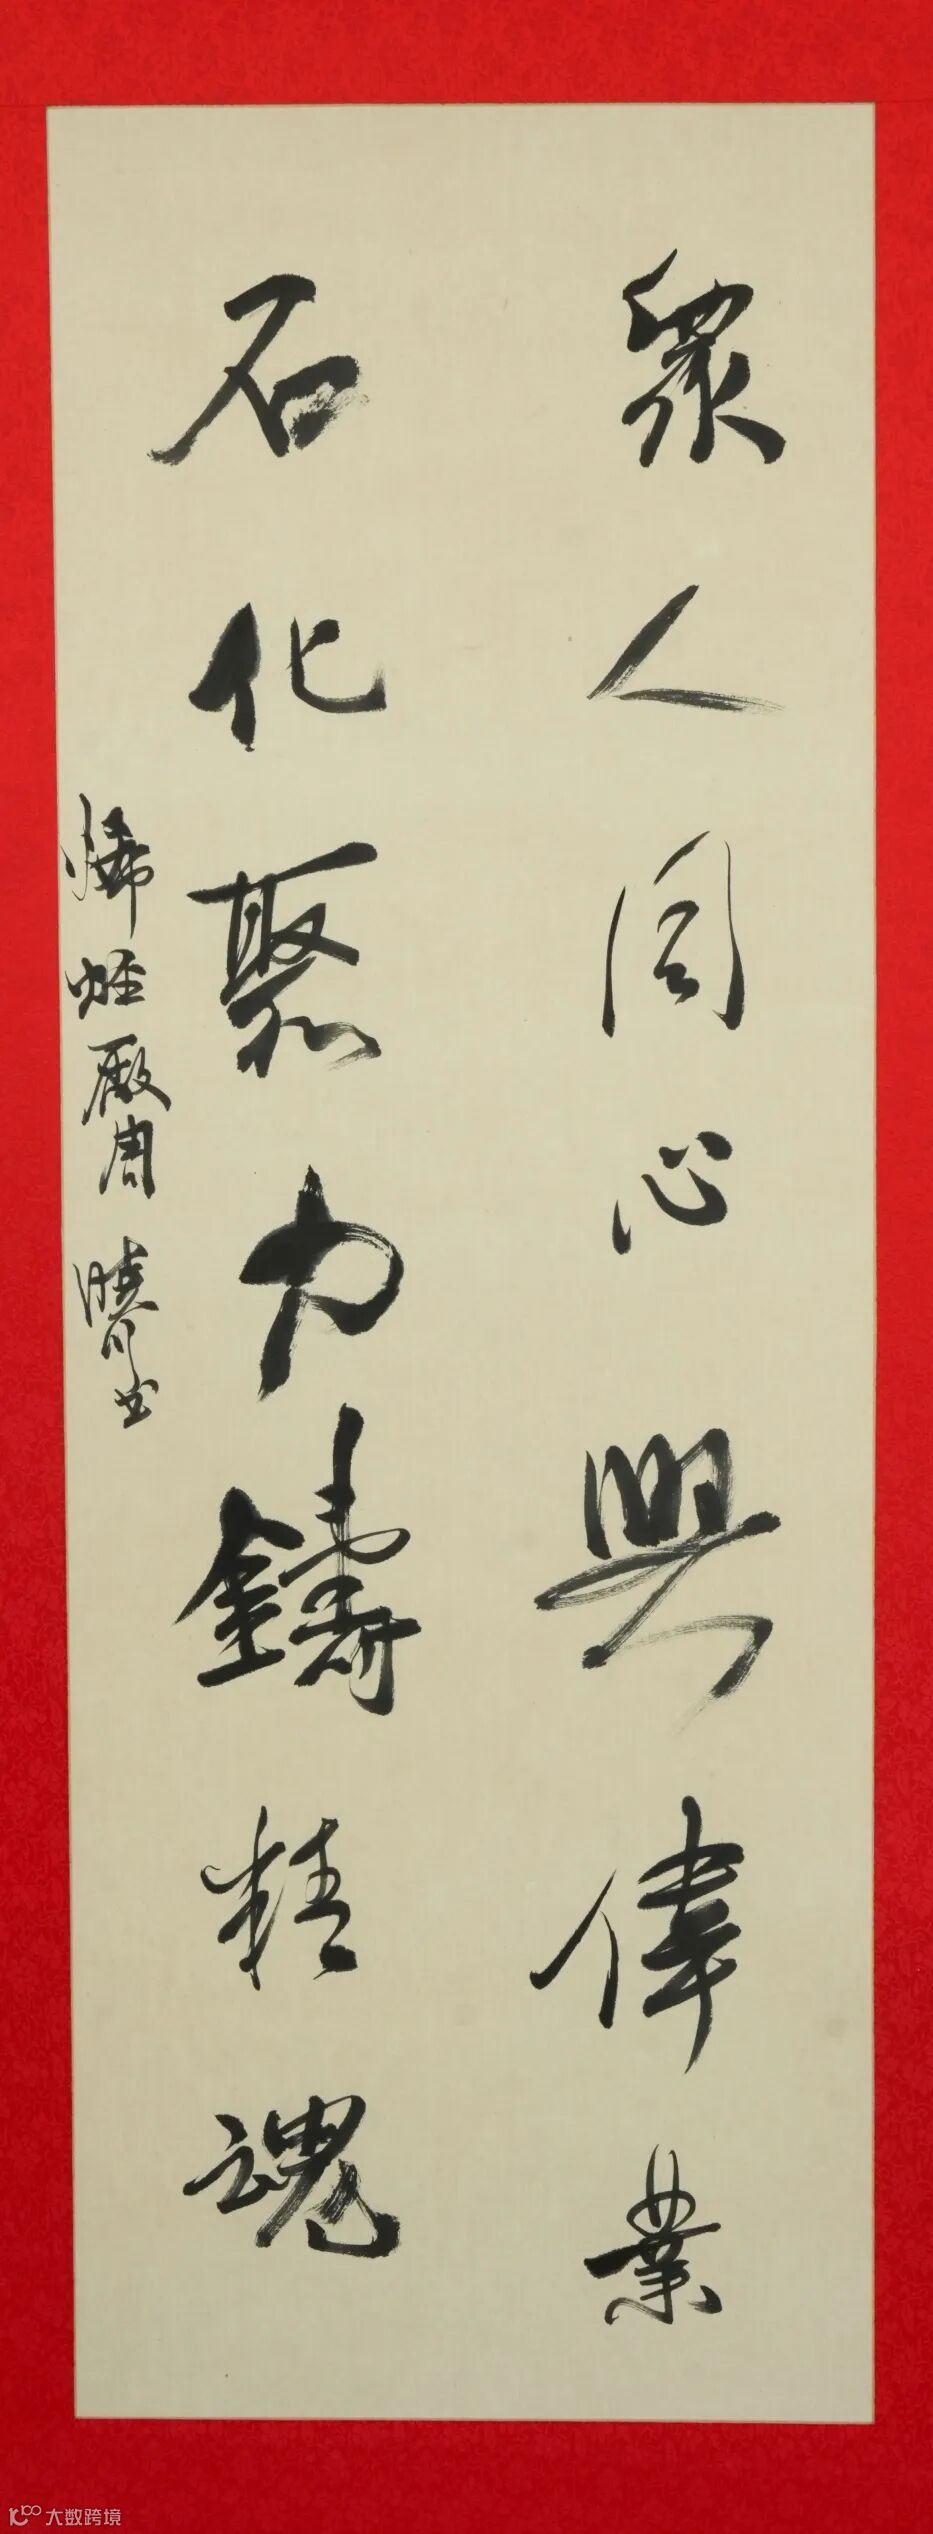 眾人同心興偉業
石化聚力鑄精魂
烯烴廠周曉川书
大数跨境